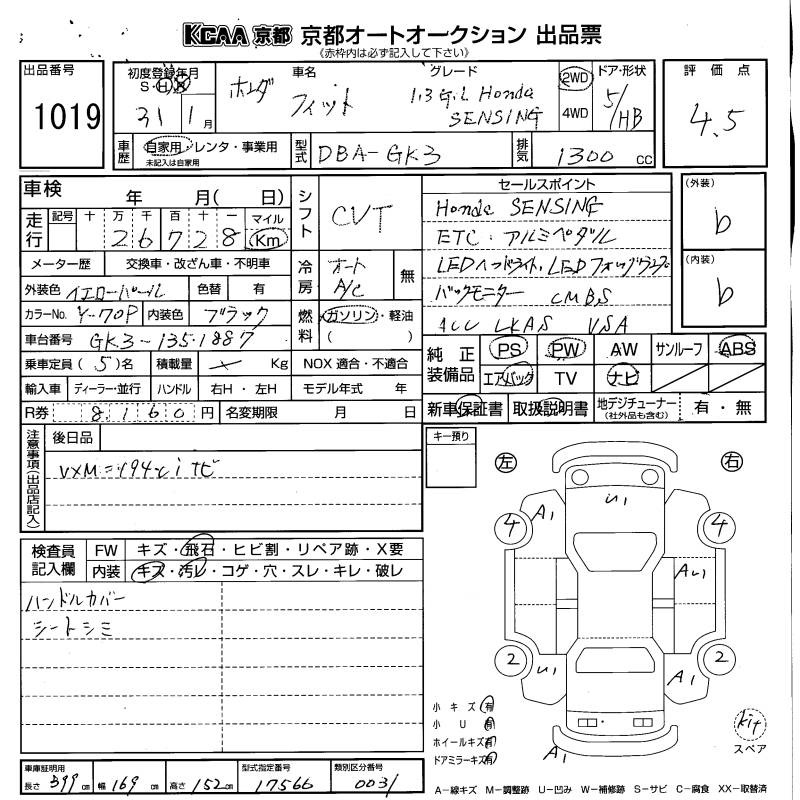 KCAA 京都 京都オートオークション 出品票
《赤枠内は必ず記入して下さい》
出品番号
1019
初度登録年月
S・H
31 1月
車名
ホンダ フィット
グレード
1.3 G.L Honda
SENSING
2WD
4WD
ドア・形状
5/HB
評価点
4.5
車歴
自家用・レンタ・事業用
未記入は自家用
型式
DBA-GK3
排気
1300 CC
車検 年 月( 日)
走行
記号 十 万 千 百 十 一 マイル
2 6 7 2 8 Km
メーター歴 交換車・改ざん車・不明車
外装色 イエローパール 色替 有
カラーNo. Y-70P 内装色 ブラック
車台番号 GK3-1351887
乗車定員 (5)名 積載量 Kg
輸入車 ディーラー・並行 ハンドル 右H・左H
R券 8160円 名変期限 月 日
シフト
CVT
冷房
オート
A/C
無
燃料
ガソリン・軽油
( )
NOX 適合・不適合
モデル年式 年
セールスポイント
Honda SENSING
ETC・アルミペダル
LEDヘッドライト、LEDフォグランプ
バックモニター CMBS
ACC LKAS VSA
(外装)
b
(内装)
b
純正装備品
PS PW AW サンルーフ ABS
エアバッグ TV ナビ
新車保証書 取扱説明書 地デジチューナー (社外品も含む) 有・無
注意事項(出品店記入)
後日品
VXM=194Ciナビ
キー預り
左
右
検査員記入欄
FW キズ・飛石・ヒビ割・リペア跡・X要
内装 キズ・汚レ・コゲ・穴・スレ・キレ・破レ
ハンドルカバー
シートシミ
U1
A1
4
4
AU1
2
2
U1
A1
A1
小キズ 有
小U 有
ホイールキズ 有
ドアミラーキズ 有
kit
スペア
車庫証明用
長さ 399cm 幅 169cm 高さ 152cm
型式指定番号
17566
類別区分番号
0031
A－線キズ M－調整跡 U－凹み W－補修跡 S－サビ C－腐食 XX－取替済